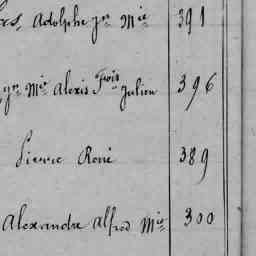 Adolphe Jn Mie 391
Jn Mie Alexis Fois Julien 396
Pierre René 389
Alexandre Alfred Mie 300